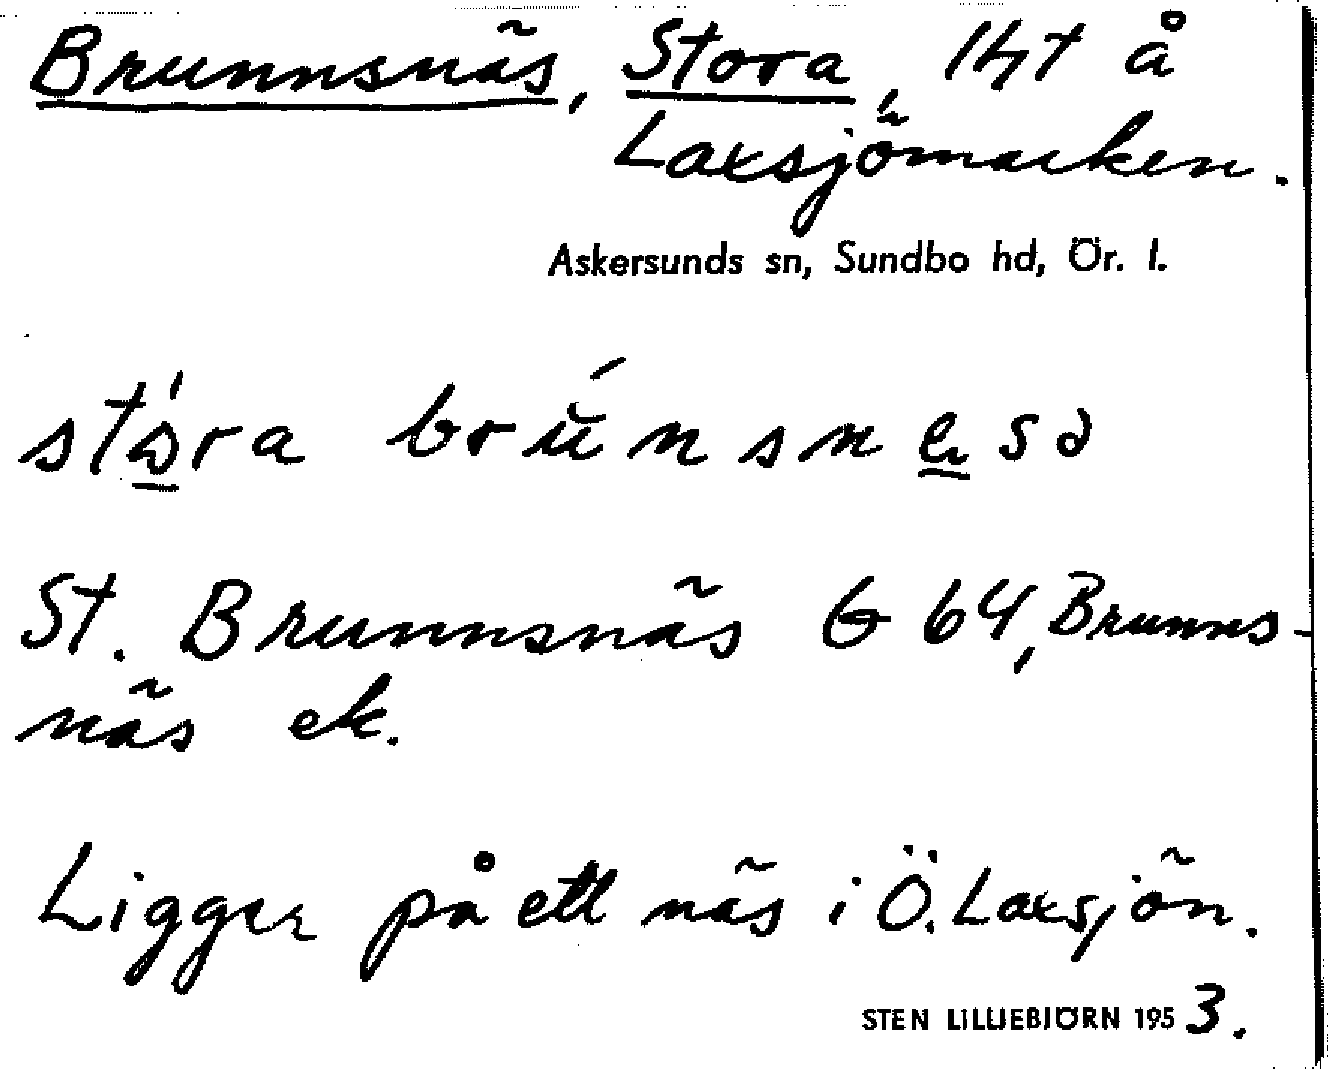 Brunnsnäs, Stora, lht å
Laxsjömarken.
Askersunds sn, Sundbo hd, Ör. l.
stóra brúnsnesə
St. Brunnsnäs G 64, Brunns-
näs ek.
Ligger på ett näs i Ö. Laxsjön.
STEN LILLIEBJÖRN 1953.